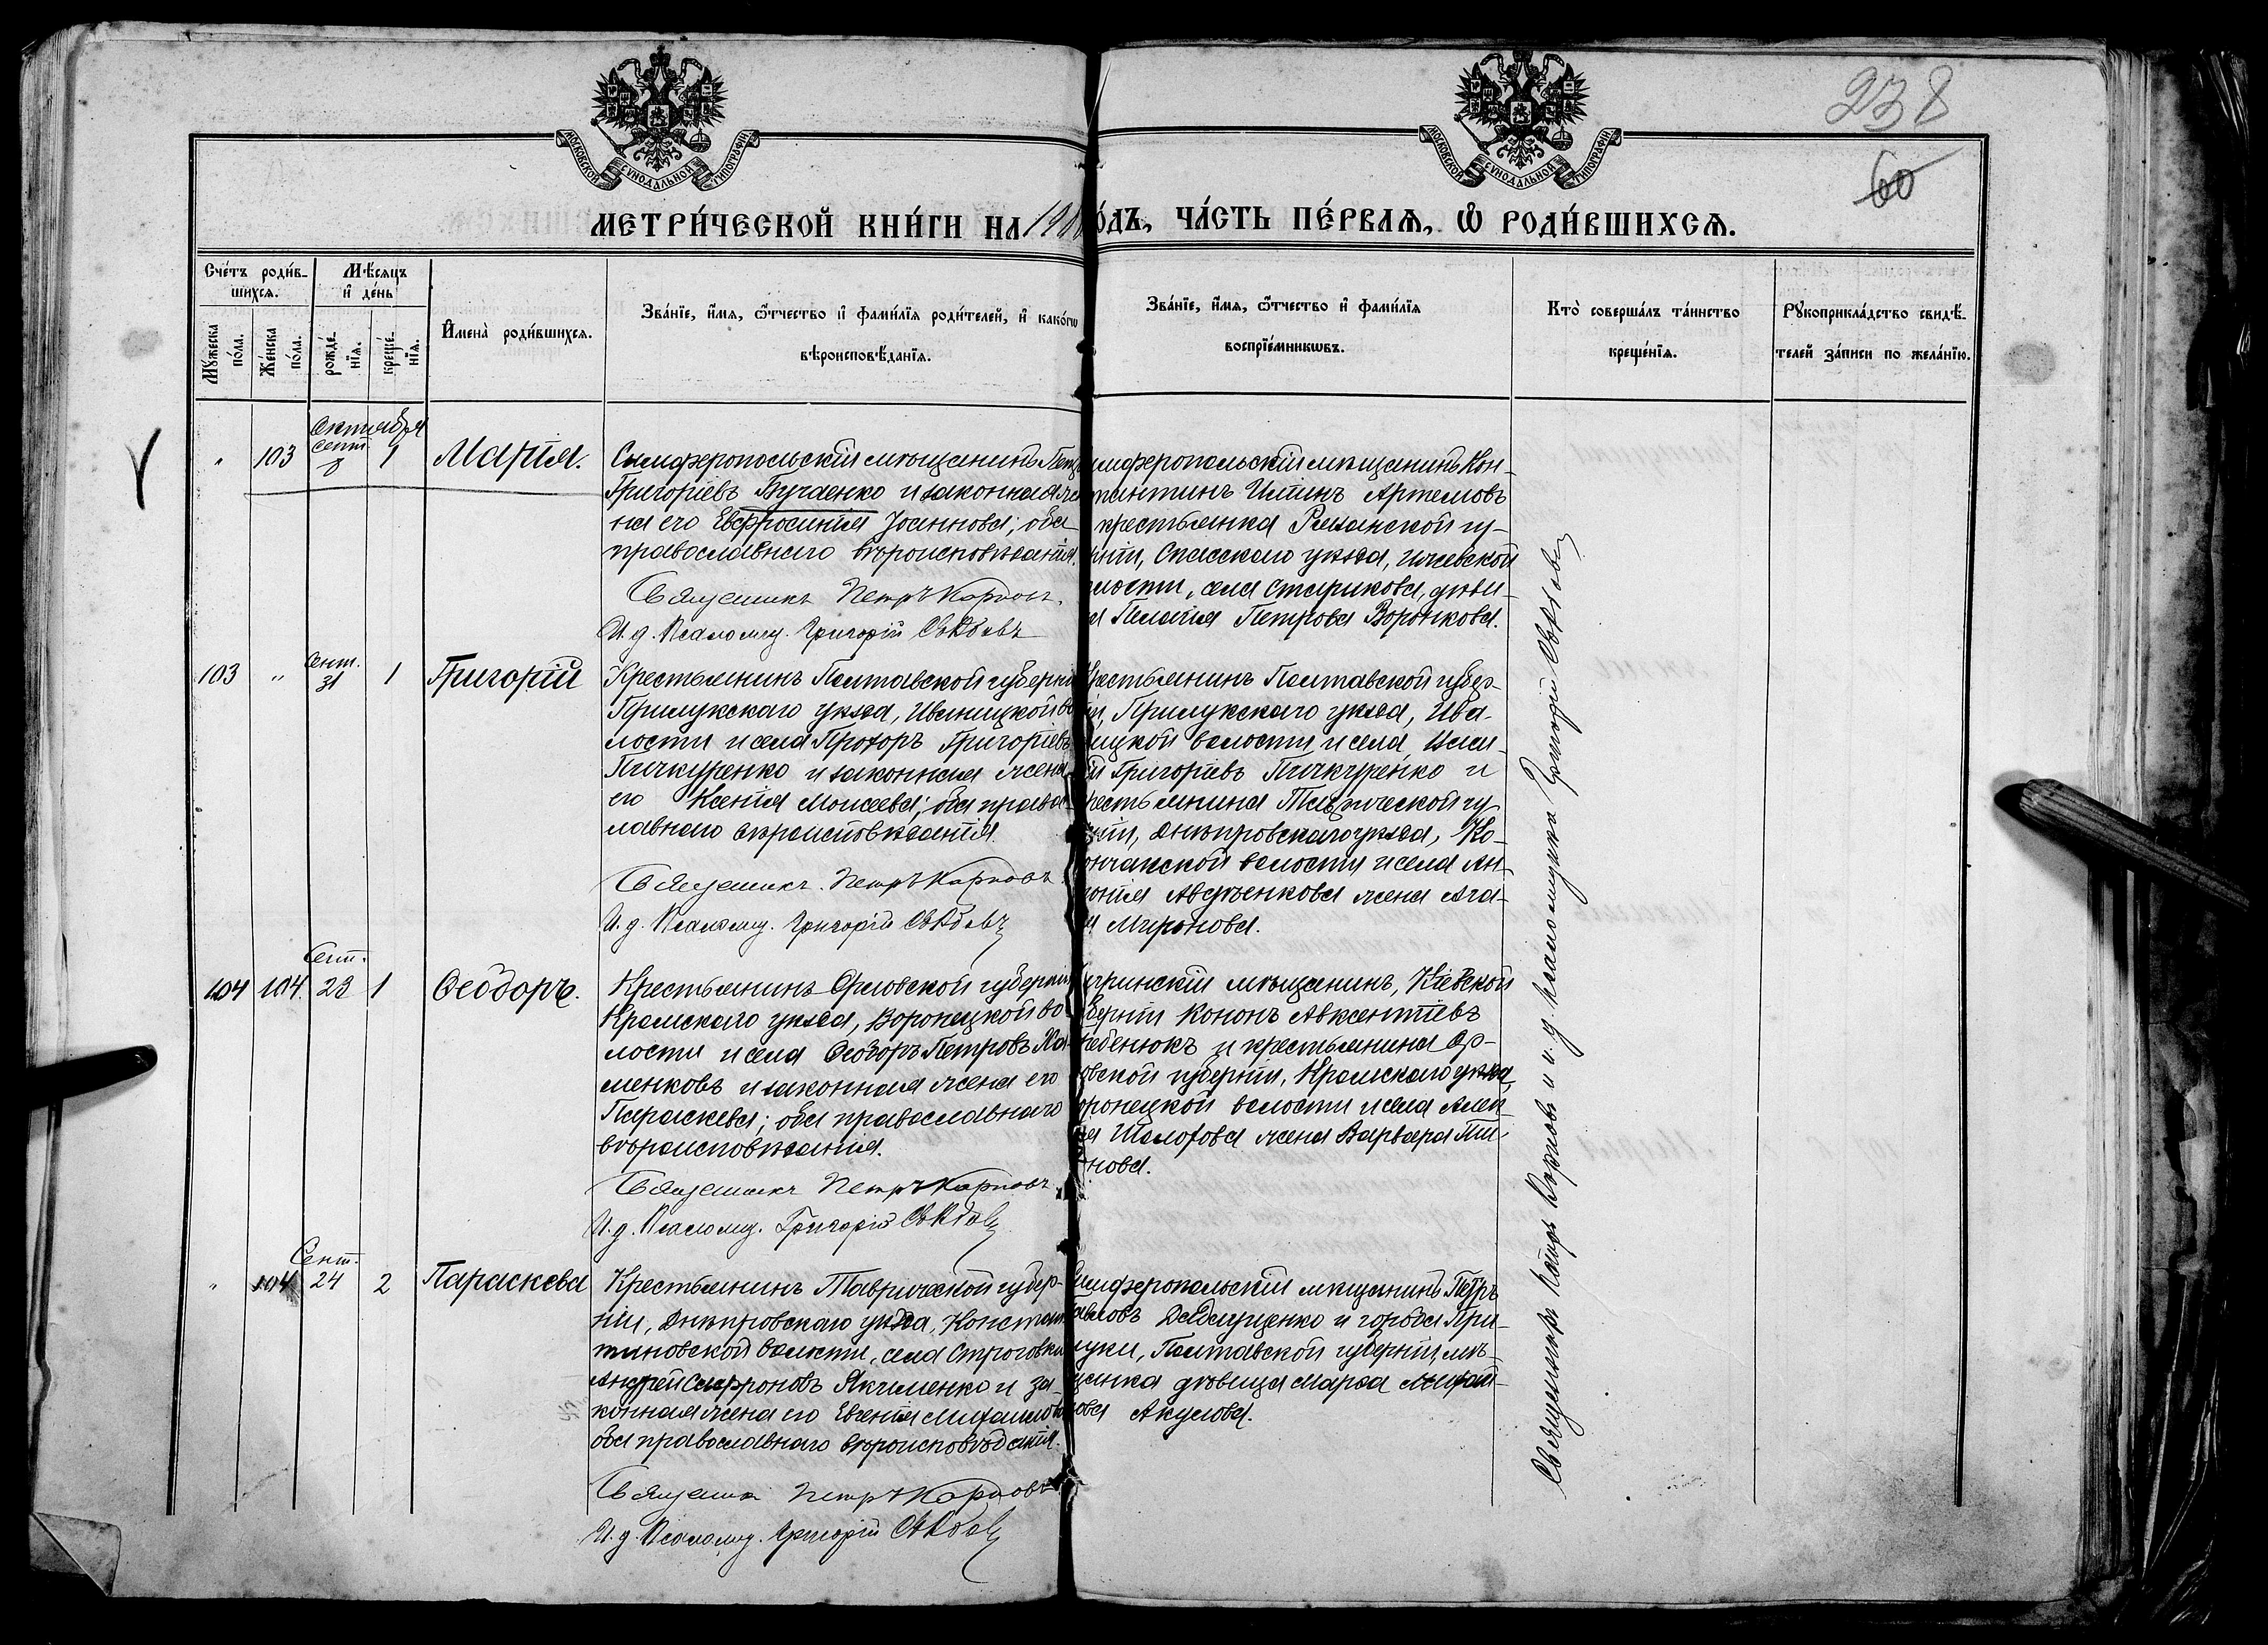 238
60
МОСКОВСКОЙ СѴНОДАЛЬНОЙ ТИПОГРАФІИ
МОСКОВСКОЙ СѴНОДАЛЬНОЙ ТИПОГРАФІИ
МЕТРИ́ЧЕСКОЙ КНИ́ГИ НА 190
О́ДЪ, ЧА́СТЬ ПЕ́РВАѦ, Ѡ҆ РОДИ́ВШИХСѦ.
Сче́тъ роди́в-
шихсѧ.
Мѣ́сѧцъ
и҆ де́нь
Мꙋ́жеска
по́ла.
Же́нска
по́ла.
рожде́-
нїѧ.
креще́-
нїѧ.
И҆мена̀ роди́вшихсѧ.
Зва́нїе, и҆́мѧ, ѻ҆́тчество и҆ фами́лїѧ роди́телей, и҆ како́гѡ
вѣроисповѣ́данїѧ.
Зва́нїе, и҆́мѧ, ѻ҆́тчество и҆ фами́лїѧ
воспрїе́мникѡвъ.
Кто̀ соверша́лъ та́инство
креще́нїѧ.
Рꙋкоприкла́дство свидѣ́-
телей за́писи по жела́нїю.
Октября
" 103 Сент. 8 1 Марія.
Симферопольскій мѣщанинъ Петръ
Григоріевъ Бугаенко и законная же
на его Евфросинія Іоаннова; оба
православнаго вѣроисповѣданія.
Священникъ Петръ Карповъ.
И. д. Псаломщ. Григорій
имферопольскій мѣщанинъ Кон-
тантинъ Артемовъ
крестьянка Рязанской гу-
ніи, Спасскаго уѣзда, Ижевской
лости, села Старикова, дѣви-
а Пелагія Петрова Воронкова.
103 " Сент. 31 1 Григорій
Крестьянинъ Полтавской губерніи
Прилукскаго уѣзда, Иваницкой во
лости и села Прохоръ Григоріевъ
Пичкуренко и законная жена
его Ксенія Моисеева; оба правос-
лавнаго вѣроисповѣданія.
Священникъ Петръ Карповъ
И. д. Псаломщ. Григорій
Крестьянинъ Полтавской губер-
іи, Прилукскаго уѣзда, Ива-
ицкой волости и села, Васи-
ій Григоріевъ Пичкуренко и
рестьянина Таврической гу-
ніи, Днѣпровскаго уѣзда, Ко-
ончакской волости и села Ан-
онія Авдѣенкова жена Ага-
я Миронова.
104 104. Сент. 23 1 Ѳеодоръ.
Крестьянинъ Орловской губерніи
Кромскаго уѣзда, Воронецкой во-
лости и села Ѳеодоръ Петровъ Ха-
менковъ и законная жена его
Параскева; оба православнаго
вѣроисповѣданія.
Священникъ Петръ Карповъ.
И. д. Псаломщ. Григорій
игринскій мѣщанинъ, Кіевской
берніи Кононъ Авксентіевъ
ребенюкъ и крестьянина Ор-
овской губерніи, Кромскаго уѣзда,
оронецкой волости и села Алек-
ѣя Шолохова жена Варвара Ти-
нова.
" 104 Сент. 24 2 Параскева
Крестьянинъ Таврической губер-
ніи, Днѣпровскаго уѣзда, Констан
тиновской волости, села Строговки
Андрей Сафроновъ Якименко и за-
конная жена его Евгенія Михаилова
оба православнаго вѣроисповѣданія.
Священник Петръ Карповъ
И. д. Псаломщ. Григорій
Симферопольскій мѣщанинъ Петръ
авловъ и города При-
луки, Полтавской губерніи, мѣ-
щанка дѣвица Марѳа Михаи-
ова Акулова.
Священникъ Петръ Карповъ и и. д. псаломщика Григорій